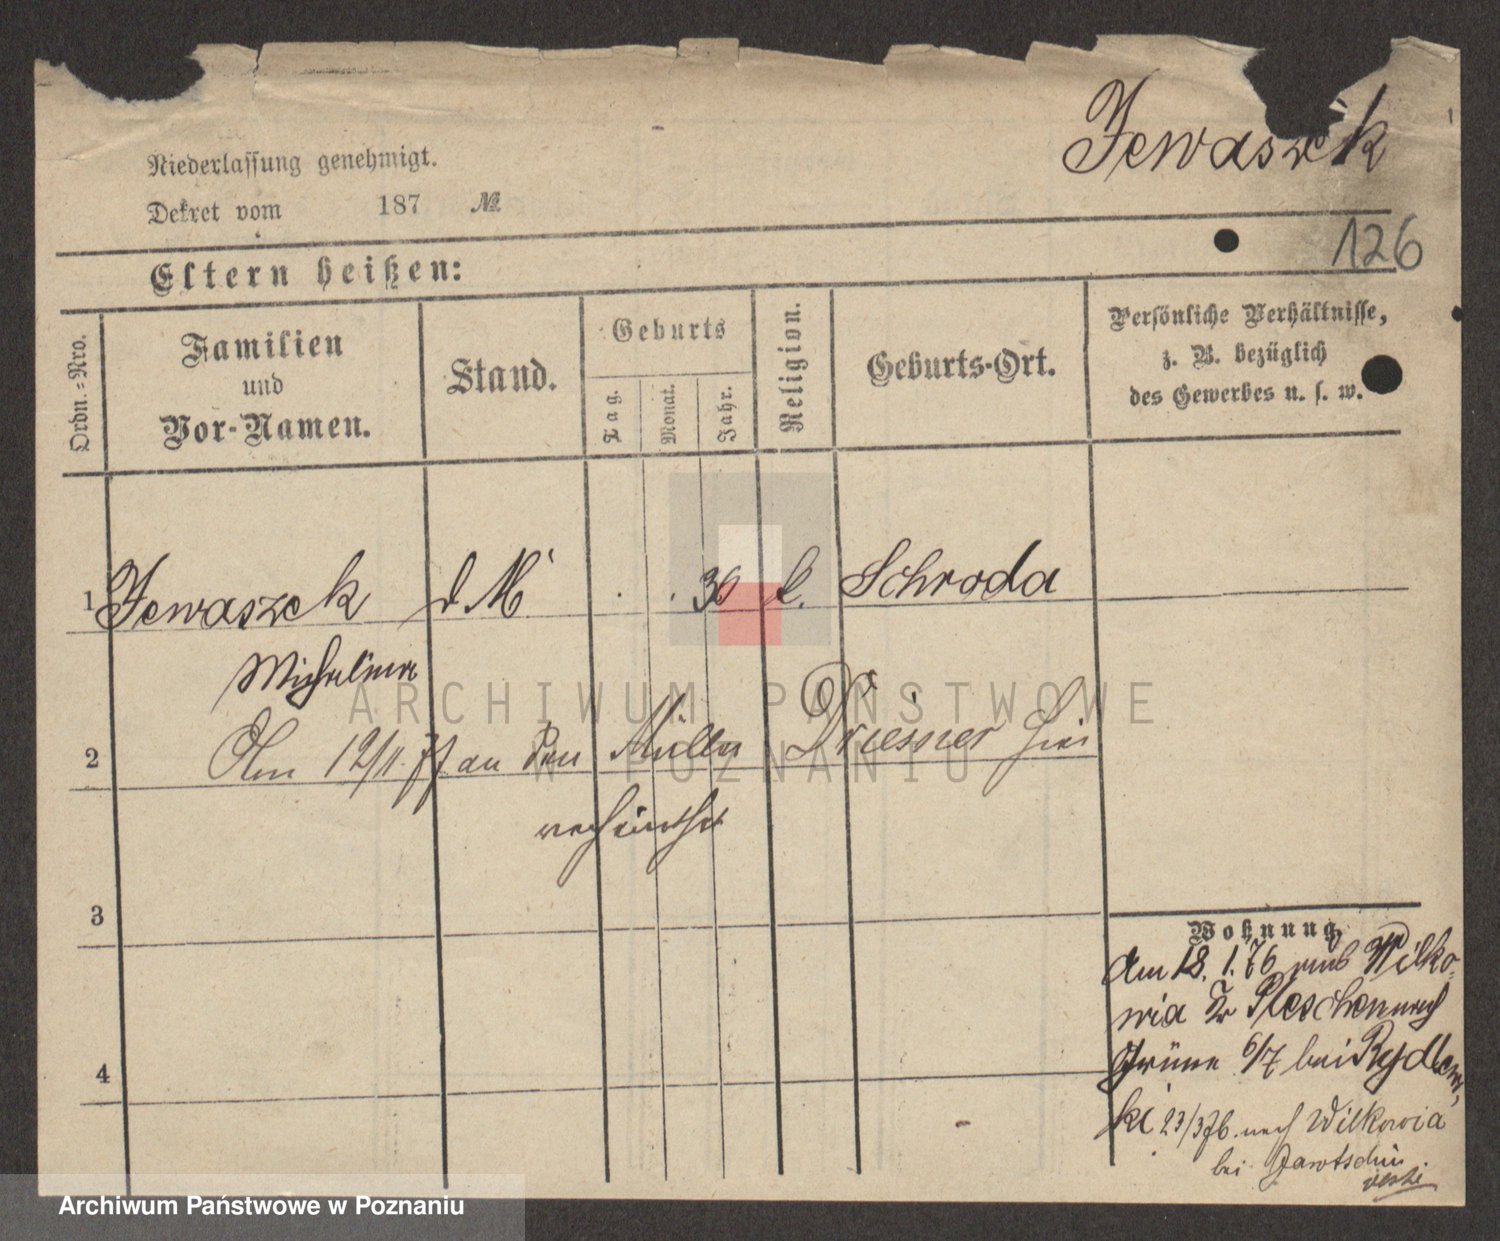 Jewaszek
Niederlassung genehmigt.
Dekret vom 187 №
126
Eltern heißen:
Ordn.=Nro.
Familien
und
Vor-Namen.
Stand.
Geburts
Tag.
Monat.
Jahr.
Religion.
Geburts-Ort.
Persönliche Verhältnisse,
z. B. bezüglich
des Gewerbes u. s. w.
1 Jewaszek d M. . . 36 k. Schroda
Michalina
2 Am 12/11. 77 an den Müller Driesner hier
verheirathet
3
4
Wohnung.
Am 18. 1. 76 aus Wilko-
wia Kr Pleschen nach
Grüne 6/7 bei Rydlews-
ki 23/3 76. nach Wilkowia
bei Jarotschin
ARCHIWUM PAŃSTWOWE
W POZNANIU
Archiwum Państwowe w Poznaniu